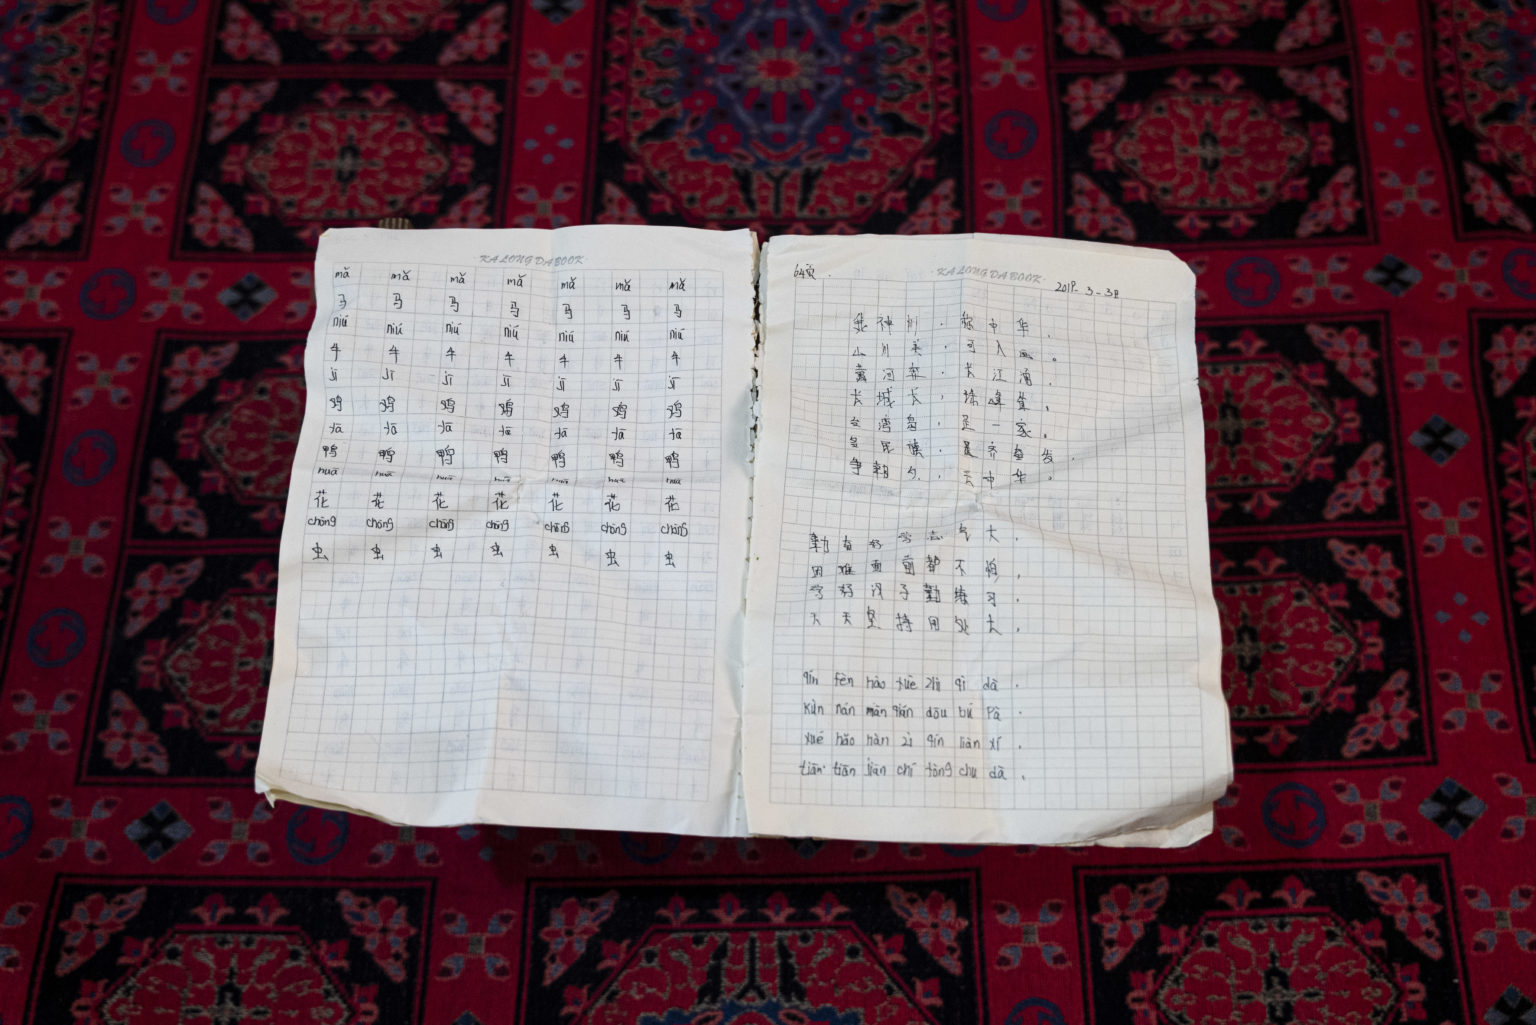 KALONGDABOOK
mǎ mǎ mǎ mǎ mǎ mǎ mǎ
马 马 马 马 马 马 马
niú niú niú niú niú niú niú
牛 牛 牛 牛 牛 牛 牛
jī jī jī jī jī jī jī
鸡 鸡 鸡 鸡 鸡 鸡 鸡
yā yā yā yā yā yā yā
鸭 鸭 鸭 鸭 鸭 鸭 鸭
huā huā huā huā huā huā huā
花 花 花 花 花 花 花
chóng chóng chóng chóng chóng chóng chóng
虫 虫 虫 虫 虫 虫 虫
KALONGDABOOK
64页. 2018-3-3日
神州,称中华,
山川美,可入画。
黄河奔,长江涌,
长城长,珠峰
台湾岛,是一家。
各民族,齐奋发,
争朝夕,中华。
勤奋好学志气大,
困难面前都不怕,
学好汉子勤练习,
天天坚持用处大,
qín fèn hào xué zhì qì dà.
kùn nán miàn qián dōu bú pà.
xué hǎo hàn zì qín liàn xí.
tiān tiān jiān chí yòng chu dà.